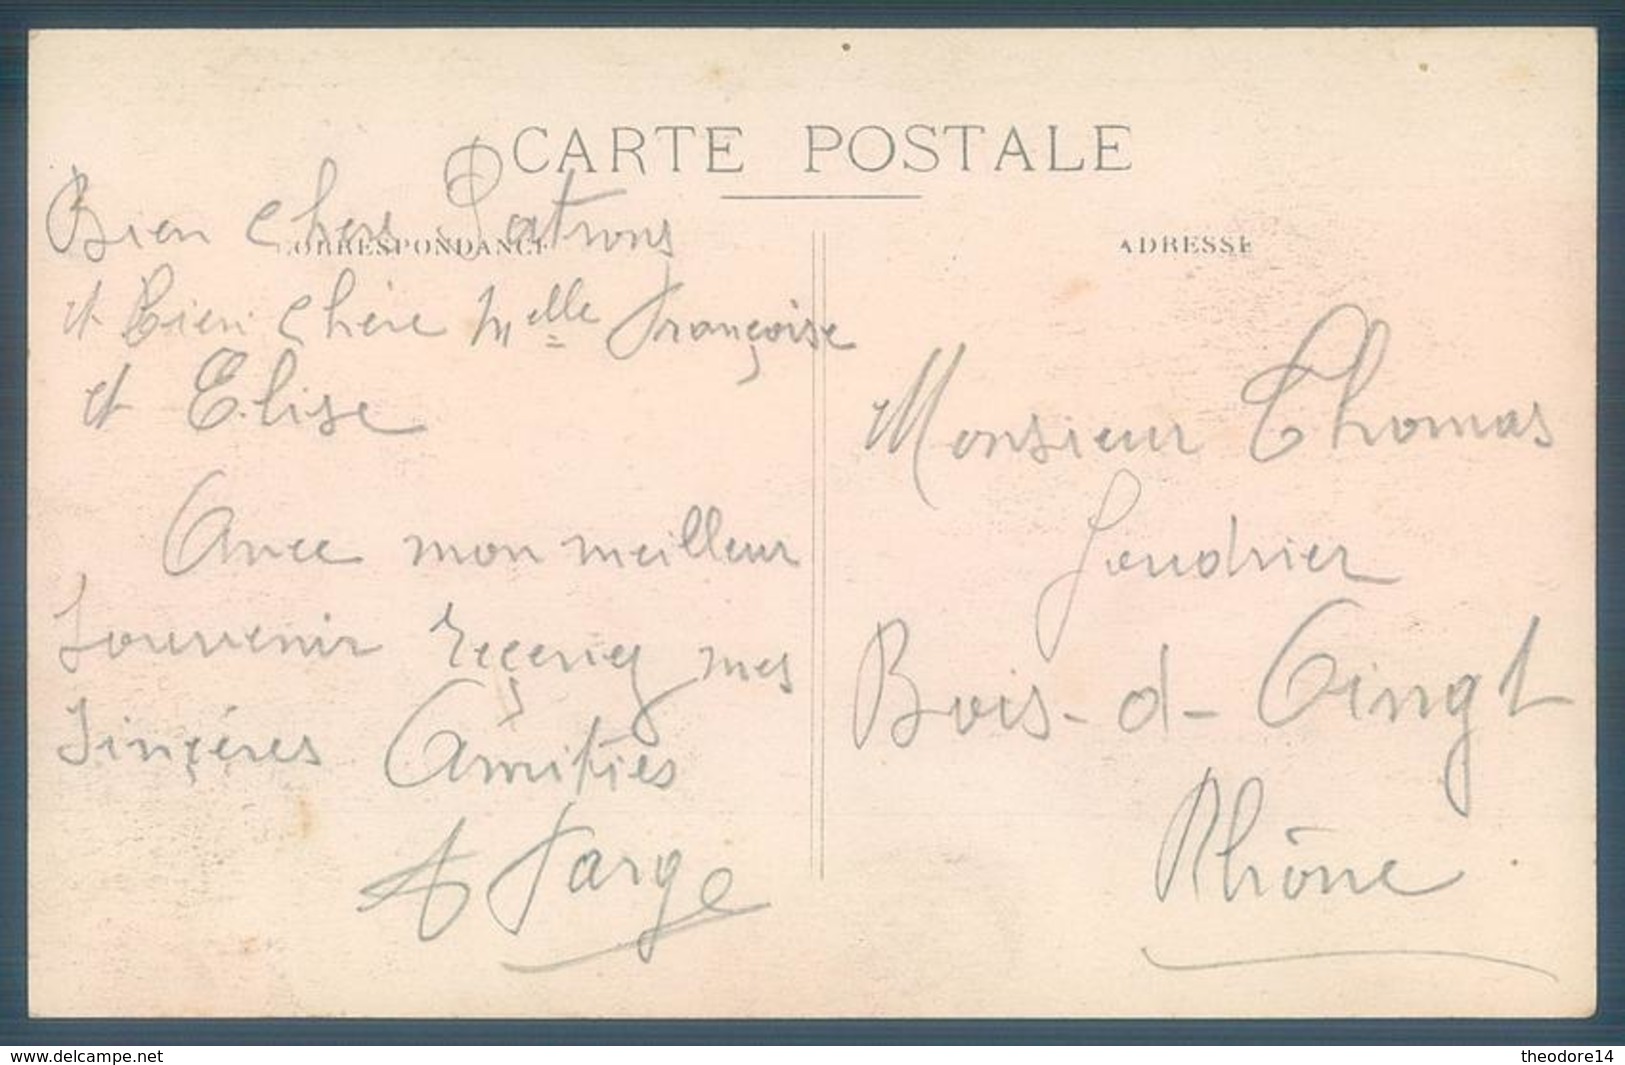 CARTE POSTALE
CORRESPONDANCE
Bien chers Patrons
et bien chère Melle Françoise
et Elise
Avec mon meilleur
Souvenir reçeviez mes
Sinçères Amitiés
A Farge
ADRESSE
Monsieur Thomas
Bois-d-Oingt
Rhône
www.delcampe.net
theodore14